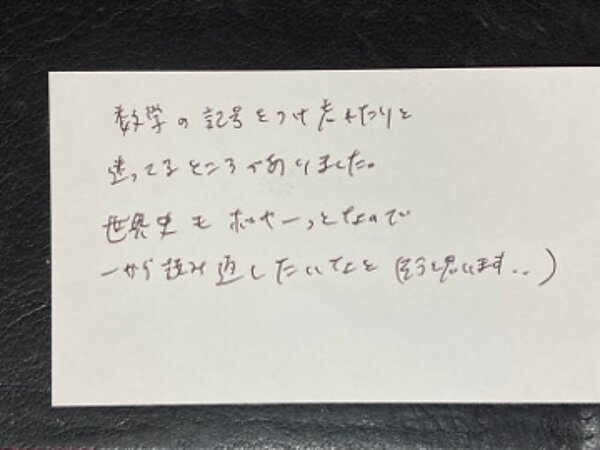 数学の記号をつけ忘れたりと
迷ってるところがありました。
世界史もボヤーっとなので
一から読み返したいなと (そう思います..)